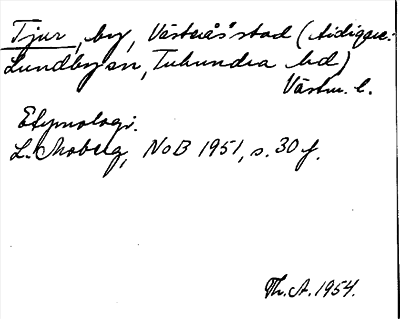 Tjur, by, Västerås stad (tidigare:
Lundbyn, Tuhundra hd)
Västm. l.
Etymologi.
L. Moberg, NoB 1951, s. 30 f.
Th. A. 1954.